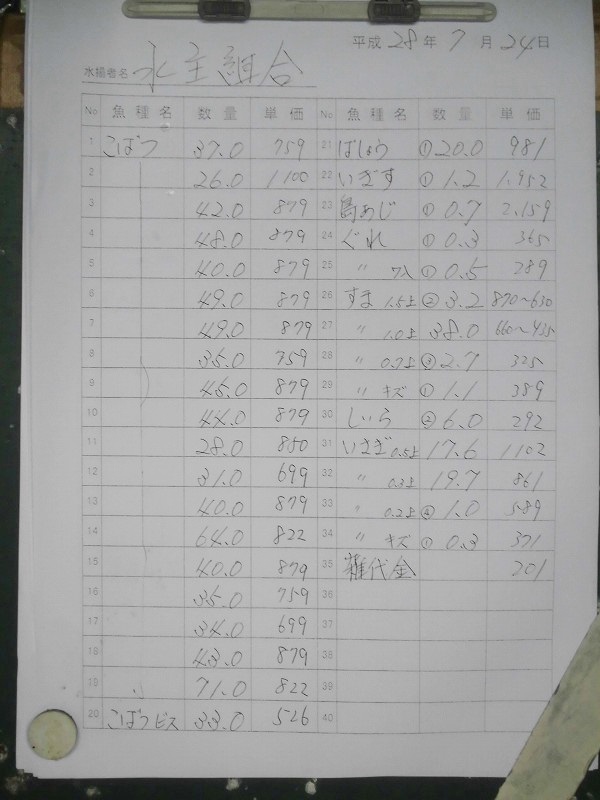 平成 28 年 7 月 24 日
水揚者名 水主組合
No 魚種名 数量 単価 No 魚種名 数量 単価
1 こばつ 37.0 759 21 ばしょう ① 20.0 981
2 26.0 1100 22 いぎす ① 1.2 1.952
3 42.0 879 23 島あじ ① 0.7 2.159
4 48.0 879 24 ぐれ ① 0.3 365
5 40.0 879 25 〃 入 ① 0.5 289
6 49.0 879 26 すま 1.5上 ② 3.2 870~630
7 49.0 879 27 〃 1.0上 38.0 660~435
8 35.0 759 28 〃 0.7上 2.7 325
9 45.0 879 29 〃 キズ ① 1.1 389
10 44.0 879 30 しいら ② 6.0 292
11 28.0 850 31 いさぎ 0.5上 17.6 1102
12 31.0 699 32 〃 0.3上 19.7 861
13 40.0 879 33 〃 0.2上 1.0 589
14 64.0 822 34 〃 キズ ① 0.3 371
15 40.0 879 35 雑代金 201
16 35.0 759 36
17 34.0 699 37
18 43.0 879 38
19 71.0 822 39
20 こばつビス 33.0 526 40